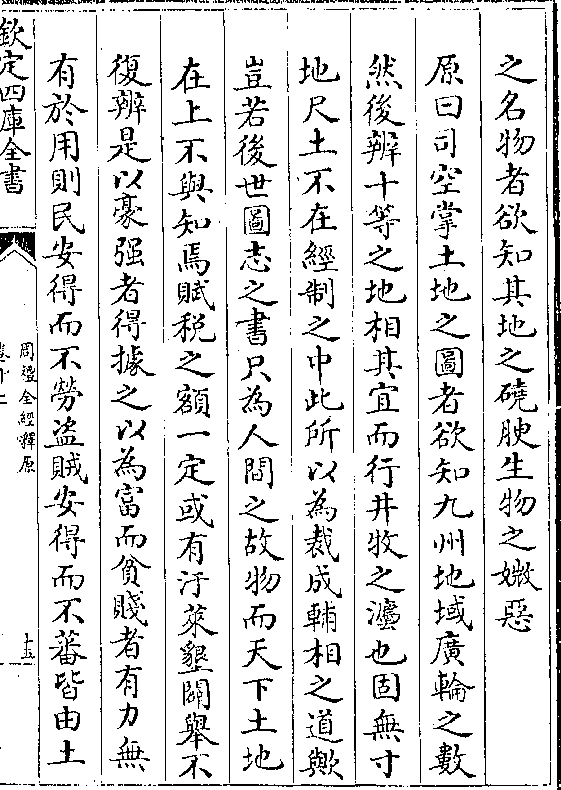 之名物者欲知其地之磽腴生物之媺惡
原曰司空掌土地之圖者欲知九州地域廣輪之數
然後辨十等之地相其宜而行井牧之灋也固無寸
地尺土不在經制之中此所以為裁成輔相之道歟
豈若後世圖志之書只為人間之故物而天下土地
在上不與知焉賦税之額一定或有汙萊墾闢舉不
復辨是以豪强者得據之以為富而貧賤者有力無
有於用則民安得而不勞盗賊安得而不蕃皆由土
欽定四庫全書
周禮全經釋原